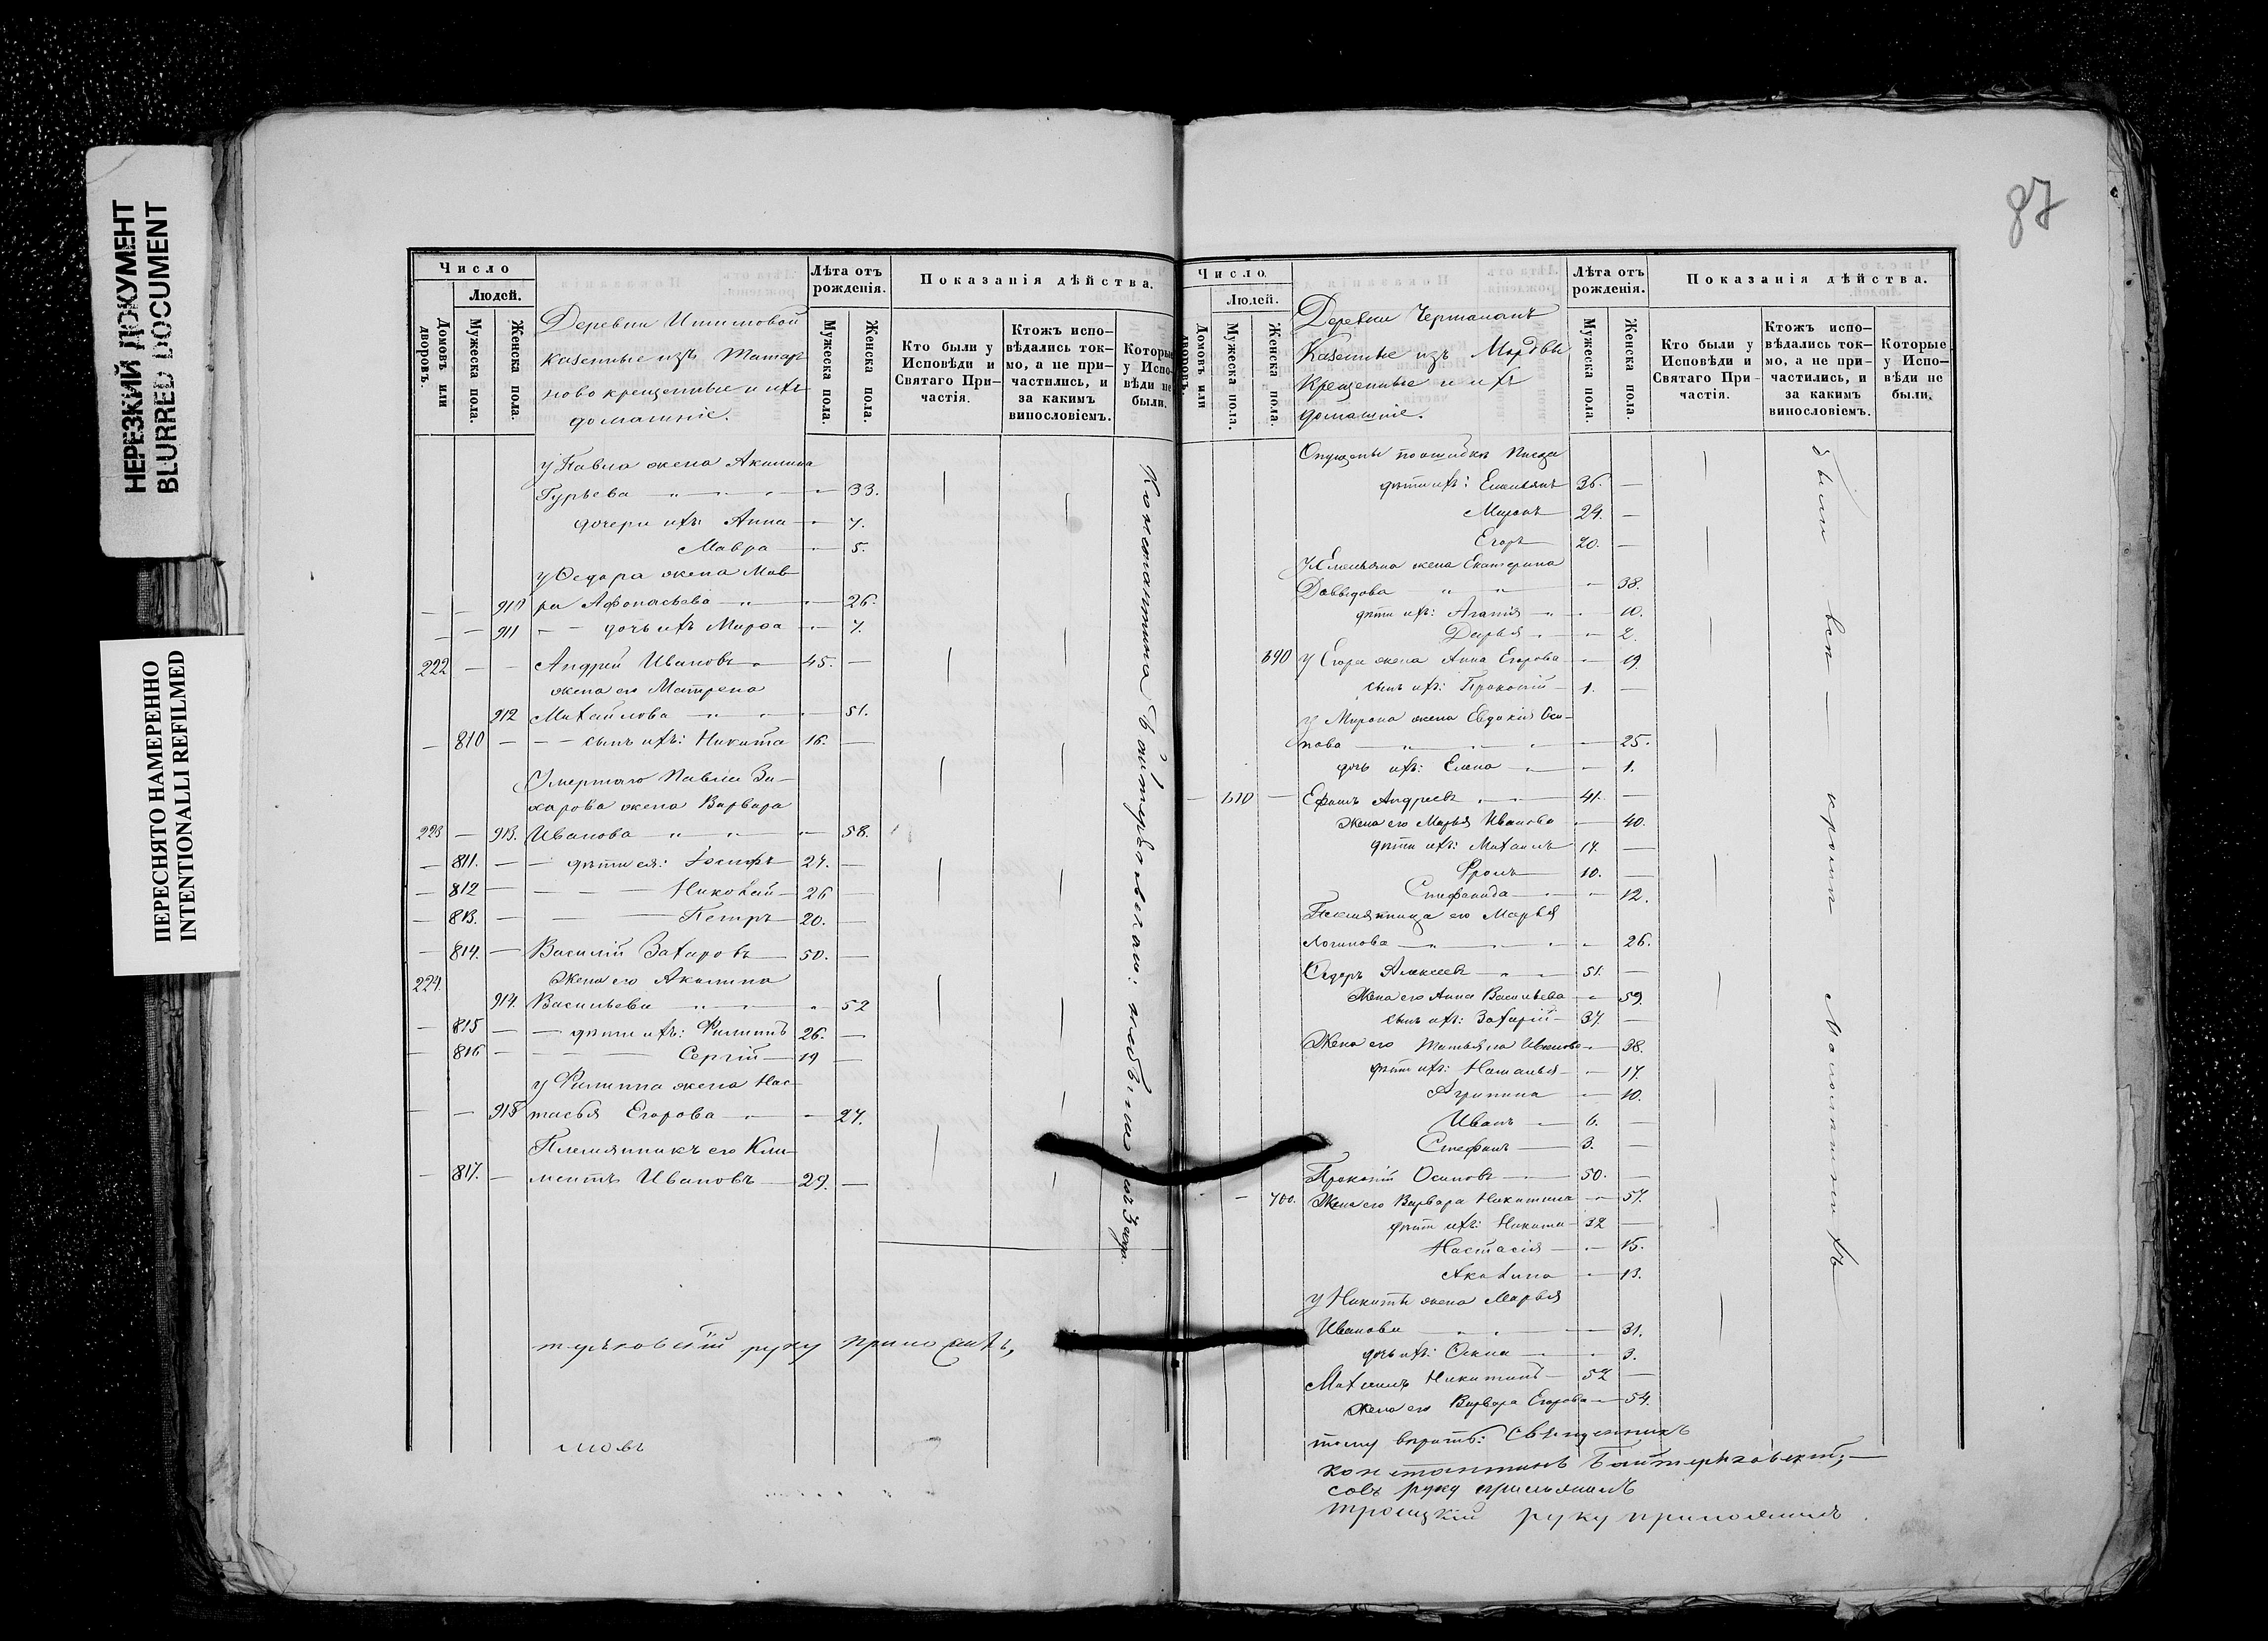 НЕРЕЗКИЙ ДОКУМЕНТ
BLURRED DOCUMENT
ПЕРЕСНЯТО НАМЕРЕННО
INTENTIONALLI REFILMED
Число
Людей.
Домовъ или дворовъ.
Мужеска пола.
Женска пола.
Деревни
казенные изъ Татаръ
новокрещенные и ихъ
домашніе.
Лѣта отъ рожденія.
Мужеска пола.
Женска пола.
Показанія дѣйства.
Кто были у Исповѣди и Святаго Причастія.
Ктожъ исповѣдались токмо, а не причастились, и за какимъ винословіемъ.
Которые у Исповѣди не были.
у Павла жена Акилина
Гурьева 33.
дочери ихъ: Анна 7.
Мавра 5.
у Ѳедора жена Мав-
910 ра Афонасьева 26.
911 дочь ихъ Марѳа 7.
222 Андрей Ивановъ 45.
жена его Матрена
912 Михайлова 51.
810 сынъ ихъ: Никита 16.
Умершаго Павла За-
харова жена Варвара
223 913. Иванова 58.
811. дѣти ея: Іосифъ 27.
812 Николай 26
813. Петръ 20.
814. Василій Захаровъ 50.
224. Жена его Акилина
914. Васильева 52
815 дѣти ихъ: Филиппъ 26.
816 Сергій 19
у Филиппа жена Нас-
915 тасья Егорова 27.
Племянникъ его Кли-
817. ментъ Ивановъ 29.
руку приложилъ,
87
Число.
Людей.
Домовъ или дворовъ.
Мужеска пола.
Женска пола.
Деревни
Казенные изъ Мордвы
крещенные и ихъ
домашніе.
Лѣта отъ рожденія.
Мужеска пола.
Женска пола.
Показанія дѣйства.
Кто были у Исповѣди и Святаго Причастія.
Ктожъ исповѣдались токмо, а не причастились, и за какимъ винословіемъ.
Которые у Исповѣди не были.
Опущены по ошибкѣ писца
дѣти ихъ: Емельянъ 36.
Миронъ 24.
Егоръ 20.
У Емельяна жена Екатерина
Давыдова 38.
дѣти ихъ: Агапія 10.
Дарья 2.
690 у Егора жена Анна Егорова 19.
сынъ ихъ: Прокопій 1.
у Мирона жена Евдокія Оси-
пова 25.
дочь ихъ: Елена 1.
610 Ефимъ Андреевъ 41.
Жена его Марья Иванова 40.
дѣти ихъ: Михаилъ 17.
Фролъ 10.
Стефанида 12.
Племянница его Марья
Логинова 26.
Ѳедоръ Алексеевъ 51.
Жена его Анна Васильева 59.
сынъ ихъ: Захарій 37.
Жена его Татьяна Иванова 38.
дѣти ихъ: Наталья 17.
Агрипина 10.
Иванъ 6.
Стефанъ 3.
Прокопій Осиповъ 50.
700. Жена его Варвара Никитина 57.
дѣти ихъ: Никита 32
Настасія 15.
Акилина 13.
у Никиты жена Марья
Иванова 31.
дочь ихъ: 3.
Михаилъ Никитинъ 52
Жена его Варвара Егорова 54.
Священникъ
Константинъ
руку приложилъ
Троицкій руку приложилъ